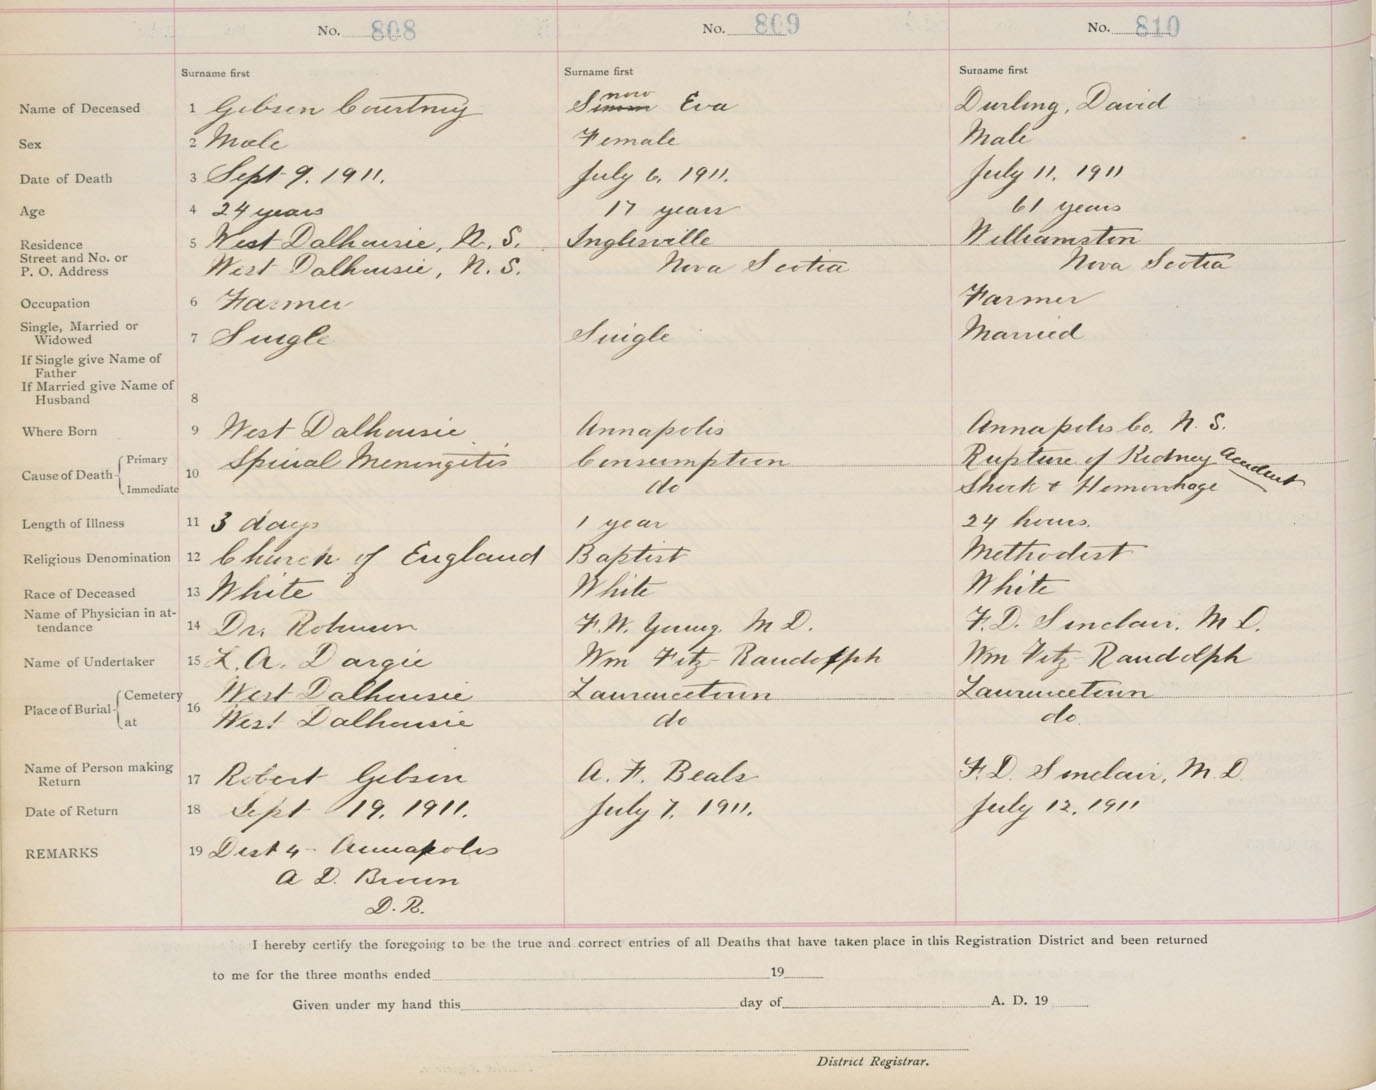 No. 808 No. 809 No. 810
Surname first Surname first Surname first
Name of Deceased 1 Gibson Courtney Simm now Eva Durling, David
Sex 2 Male Female Male
Date of Death 3 Sept 9. 1911. July 6, 1911. July 11, 1911
Age 4 24 years 17 years 61 years
Residence 5 West Dalhousie, N. S. Inglisville Williamston
Street and No. or
P. O. Address West Dalhousie, N. S. Nova Scotia Nova Scotia
Occupation 6 Farmer Farmer
Single, Married or
Widowed 7 Single Single Married
If Single give Name of
Father
If Married give Name of
Husband 8
Where Born 9 West Dalhousie Annapolis Annapolis Co. N. S.
Cause of Death Primary 10 Spinal Meningitis Consumption Rupture of Kidney Accident
Immediate do Shock + Hemorrhage
Length of Illness 11 3 days 1 year 24 hours.
Religious Denomination 12 Church of England Baptist Methodist
Race of Deceased 13 White White White
Name of Physician in at-
tendance 14 Dr. Robinson F. W. Young. M D. F. D. Sinclair. M D.
Name of Undertaker 15 L. A. Dargie Wm Fitz Randolph Wm Fitz Randolph
Place of Burial Cemetery 16 West Dalhousie Laurencetown Laurencetown
at West Dalhousie do do.
Name of Person making
Return 17 Robert Gibson A. F. Beals F. D. Sinclair, M. D.
Date of Return 18 Sept 19, 1911. July 7, 1911. July 12, 1911
REMARKS 19 Dist 4 - Annapolis
A D. Brown
D. R.
I hereby certify the foregoing to be the true and correct entries of all Deaths that have taken place in this Registration District and been returned
to me for the three months ended 19
Given under my hand this day of A. D. 19
District Registrar.